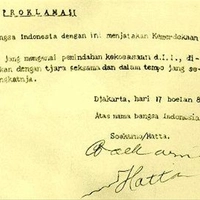 PROKLAMASI
ngsa Indonesia dengan ini menjatakan Kemerdekaan
jang mengenai pemindahan kekoeasaan d.l.l., di-
kan dengan tjara seksama dan dalam tempo jang se-
ngkatnja.
Djakarta, hari 17 boelan 8
Atas nama bangsa Indonesia
Soekarno/Hatta.
Hatta